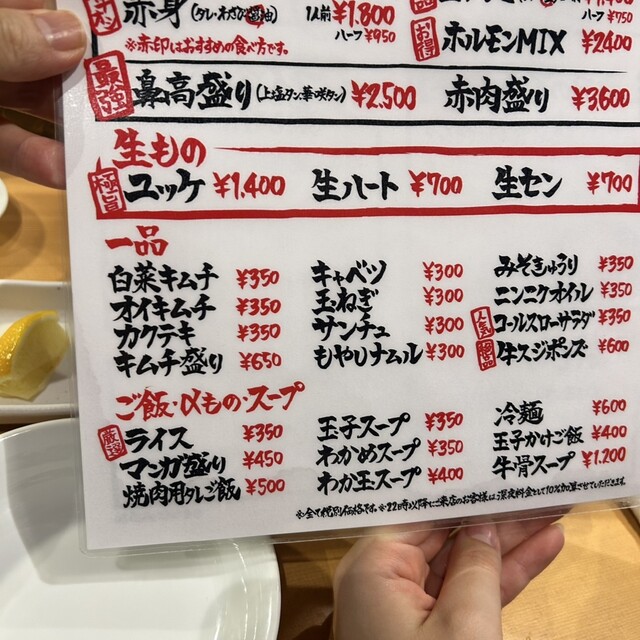 赤身(タレ・わさび醤油) 1人前 ¥1.800
ハーフ ¥950 ハーフ ¥750
※赤印はおすすめの食べ方です。
お得 ホルモンMIX ¥2400
最強 鼻高盛り(上塩タン・華咲タン) ¥2.500 赤肉盛り ¥3.600
生もの
極旨 ユッケ ¥1.400 生ハート ¥700 生セン ¥700
一品
白菜キムチ ¥350 キャベツ ¥300 みそきゅうり ¥350
オイキムチ ¥350 玉ねぎ ¥300 ニンニクオイル ¥350
カクテキ ¥350 サンチュ ¥300 人気 コールスローサラダ ¥350
キムチ盛り ¥650 もやしナムル ¥300 牛スジポンズ ¥600
ご飯・〆もの・スープ
厳選 ライス ¥350 玉子スープ ¥350 冷麺 ¥600
マンガ盛り ¥450 わかめスープ ¥350 玉子かけご飯 ¥400
焼肉用タレご飯 ¥500 わか玉スープ ¥400 牛骨スープ ¥1.200
※全て税別価格です。※22時以降にご来店のお客様は、深夜料金として10%加算させていただきます。